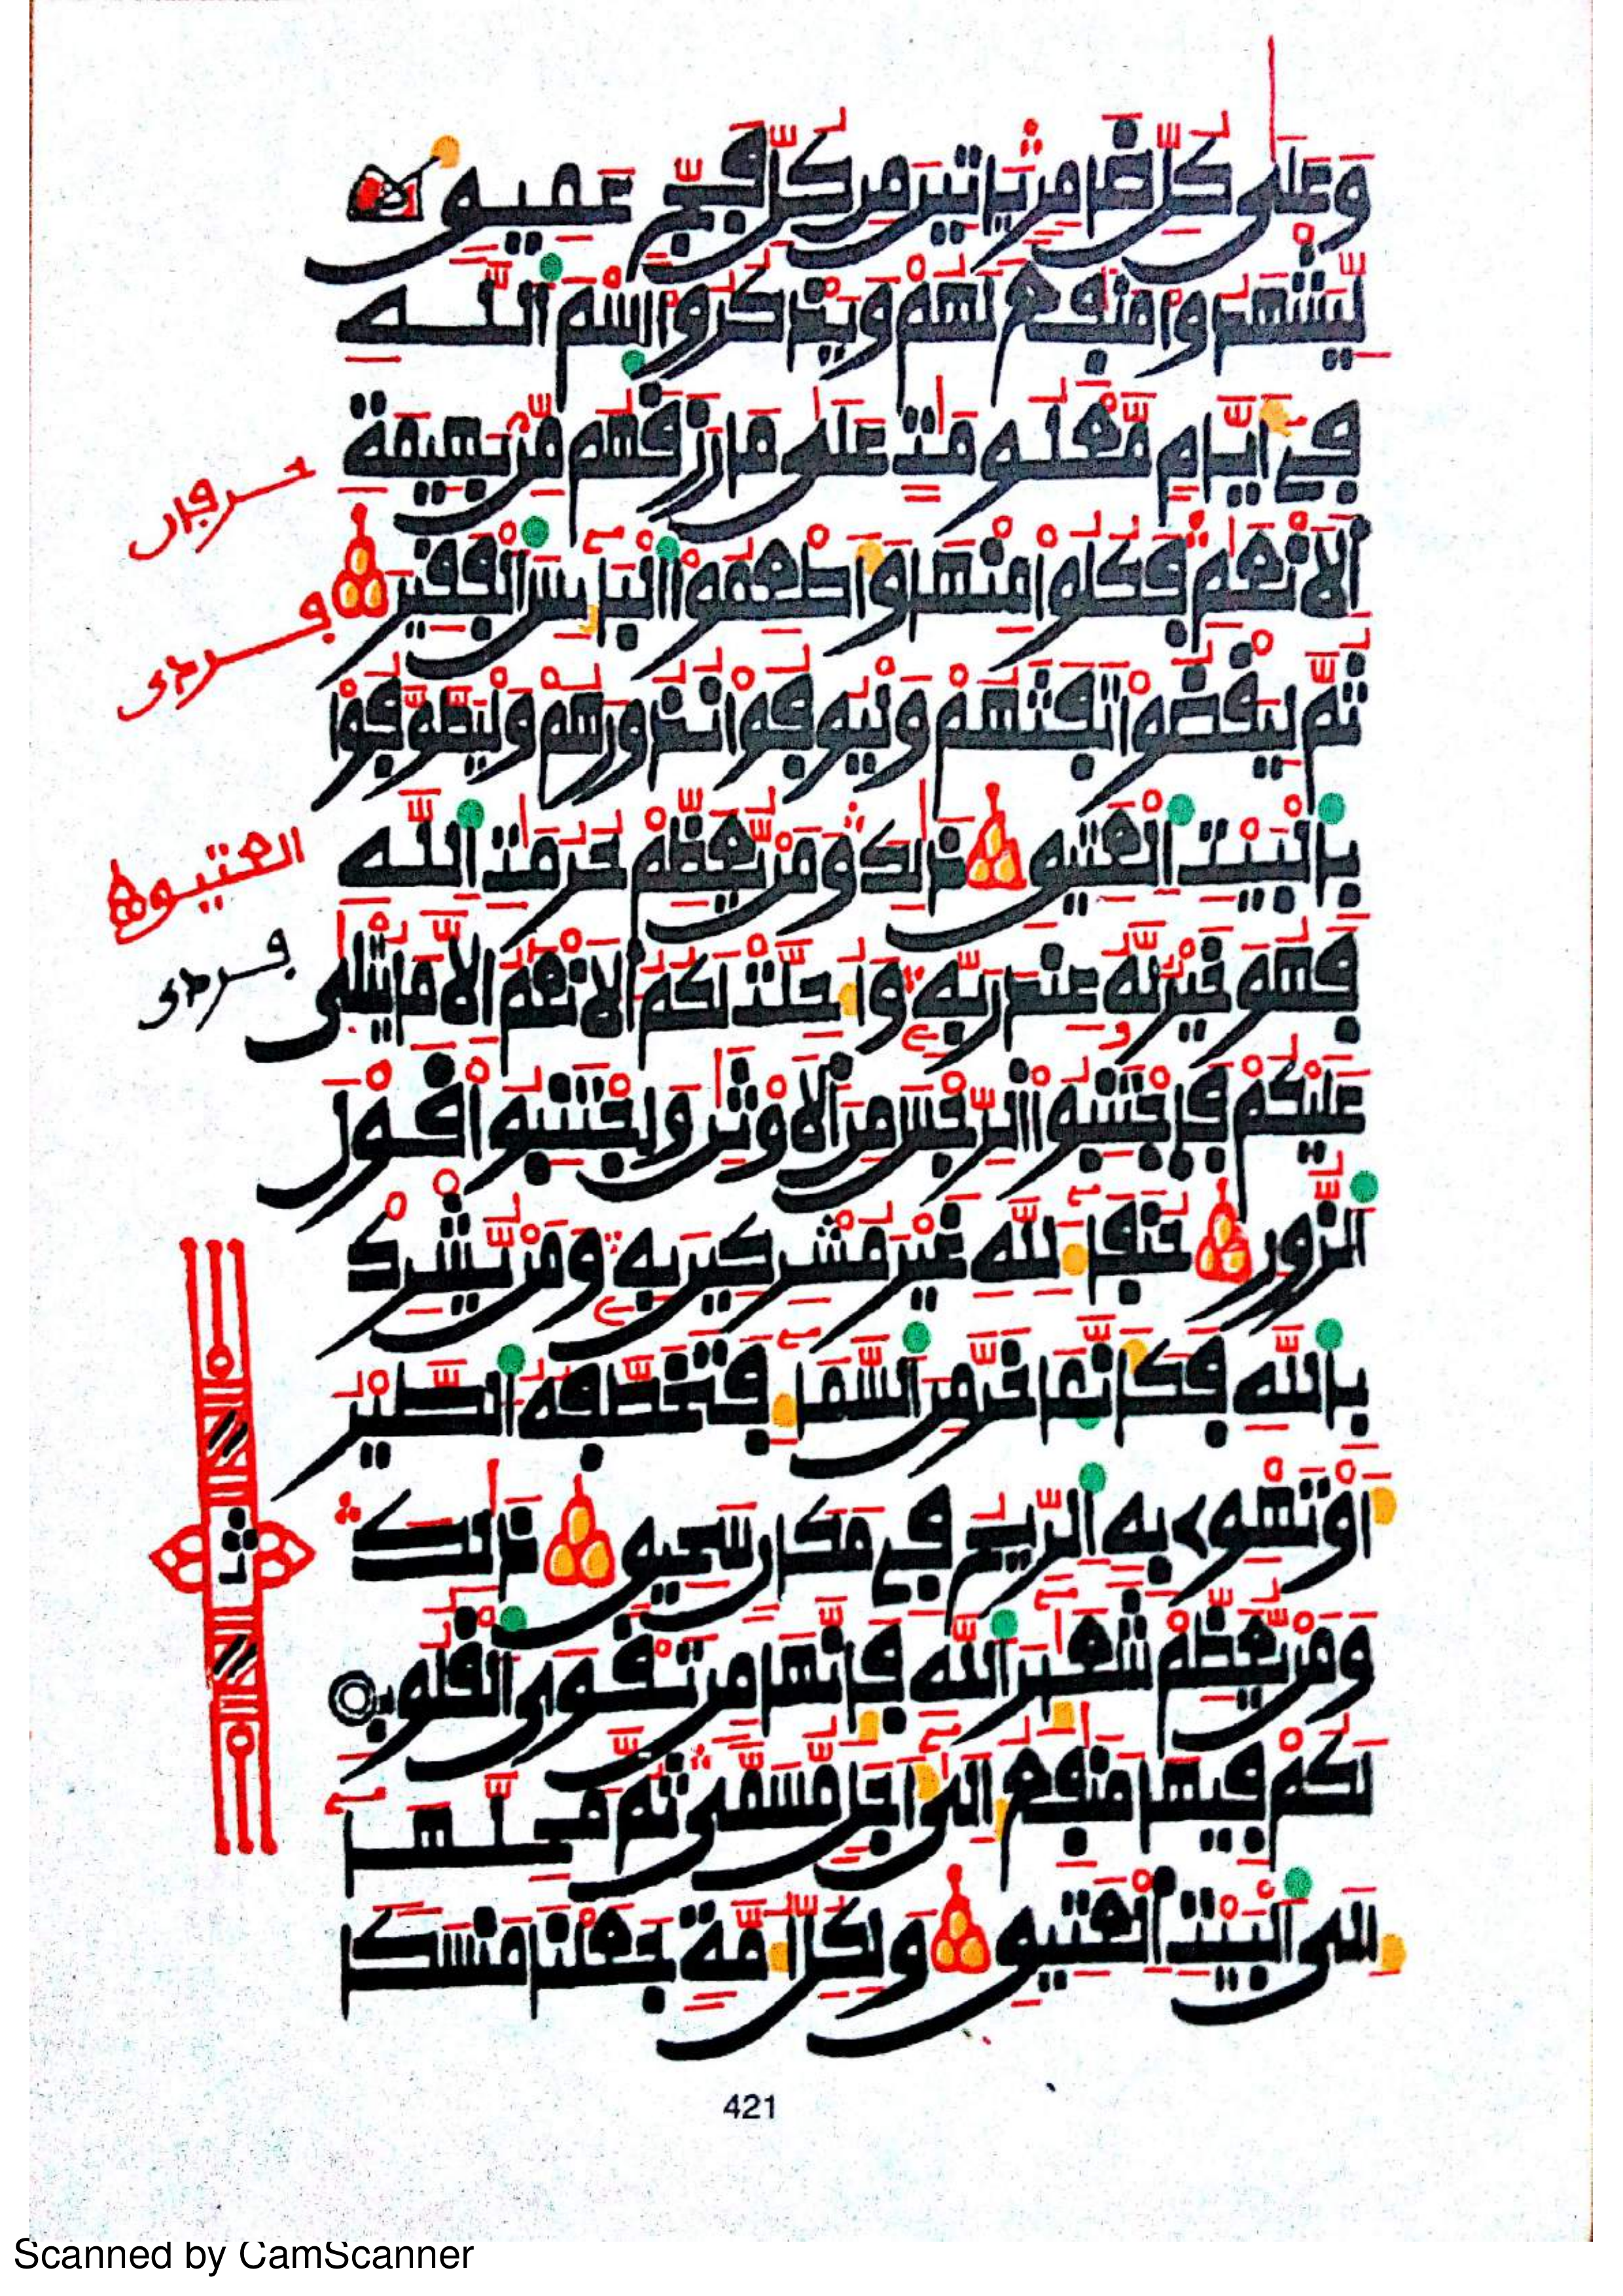 وَعَلَىٰ كُلِّ ضَامِرٍ يَاتِينَ مِن كُلِّ فَجٍّ عَمِيقٍ
لِّيَشْهَدُواْ مَنَٰفِعَ لَهُمْ وَيَذْكُرُواْ اُ۪سْمَ اَ۬للَّهِ
فِےٓ أَيَّامٍ مَّعْلُومَٰتٍ عَلَىٰ مَا رَزَقَهُم مِّنۢ بَهِيمَةِ
اِ۬لَانْعَٰمِ فَكُلُواْ مِنْهَا وَأَطْعِمُواْ اُ۬لْبَآئِسَ اَ۬لْفَقِيرَ
ثُمَّ لْيَقْضُواْ تَفَثَهُمْ وَلْيُوفُواْ نُذُورَهُمْ وَلْيَطَّوَّفُواْ
بِالْبَيْتِ اِ۬لْعَتِيقِ ذَٰلِكَ وَمَنْ يُّعَظِّمْ حُرُمَٰتِ اِ۬للَّهِ
فَهُوَ خَيْرٌ لَّهُۥ عِندَ رَبِّهِۦ وَأُحِلَّتْ لَكُمُ اُ۬لَانْعَٰمُ إِلَّا مَا يُتْلَىٰ
عَلَيْكُمْ فَاجْتَنِبُواْ اُ۬لرِّجْسَ مِنَ اَ۬لَاوْثَٰنِ وَاجْتَنِبُواْ قَوْلَ
اَ۬لزُّورِ حُنَفَآءَ لِلهِ غَيْرَ مُشْرِكِينَ بِهِۦ وَمَنْ يُّشْرِكْ
بِاللَّهِ فَكَأَنَّمَا خَرَّ مِنَ اَ۬لسَّمَآءِ فَتَخَطَّفُهُ اُ۬لطَّيْرُ
أَوْ تَهْوِے بِهِ اِ۬لرِّيحُ فِے مَكَانٍ سَحِيقٍ ذَٰلِكَ
وَمَنْ يُّعَظِّمْ شَعَٰٓئِرَ اَ۬للَّهِ فَإِنَّهَا مِن تَقْوَى اَ۬لْقُلُوبِ
لَكُمْ فِيهَا مَنَٰفِعُ إِلَىٰٓ أَجَلٍ مُّسَمّىٗ ثُمَّ مَحِلُّهَآ
إِلَى اَ۬لْبَيْتِ اِ۬لْعَتِيقِ وَلِكُلِّ أُمَّةٍ جَعَلْنَا مَنسَكاً
حرفان
فردى
العتيق
فردى
ثمن
421
Scanned by CamScanner